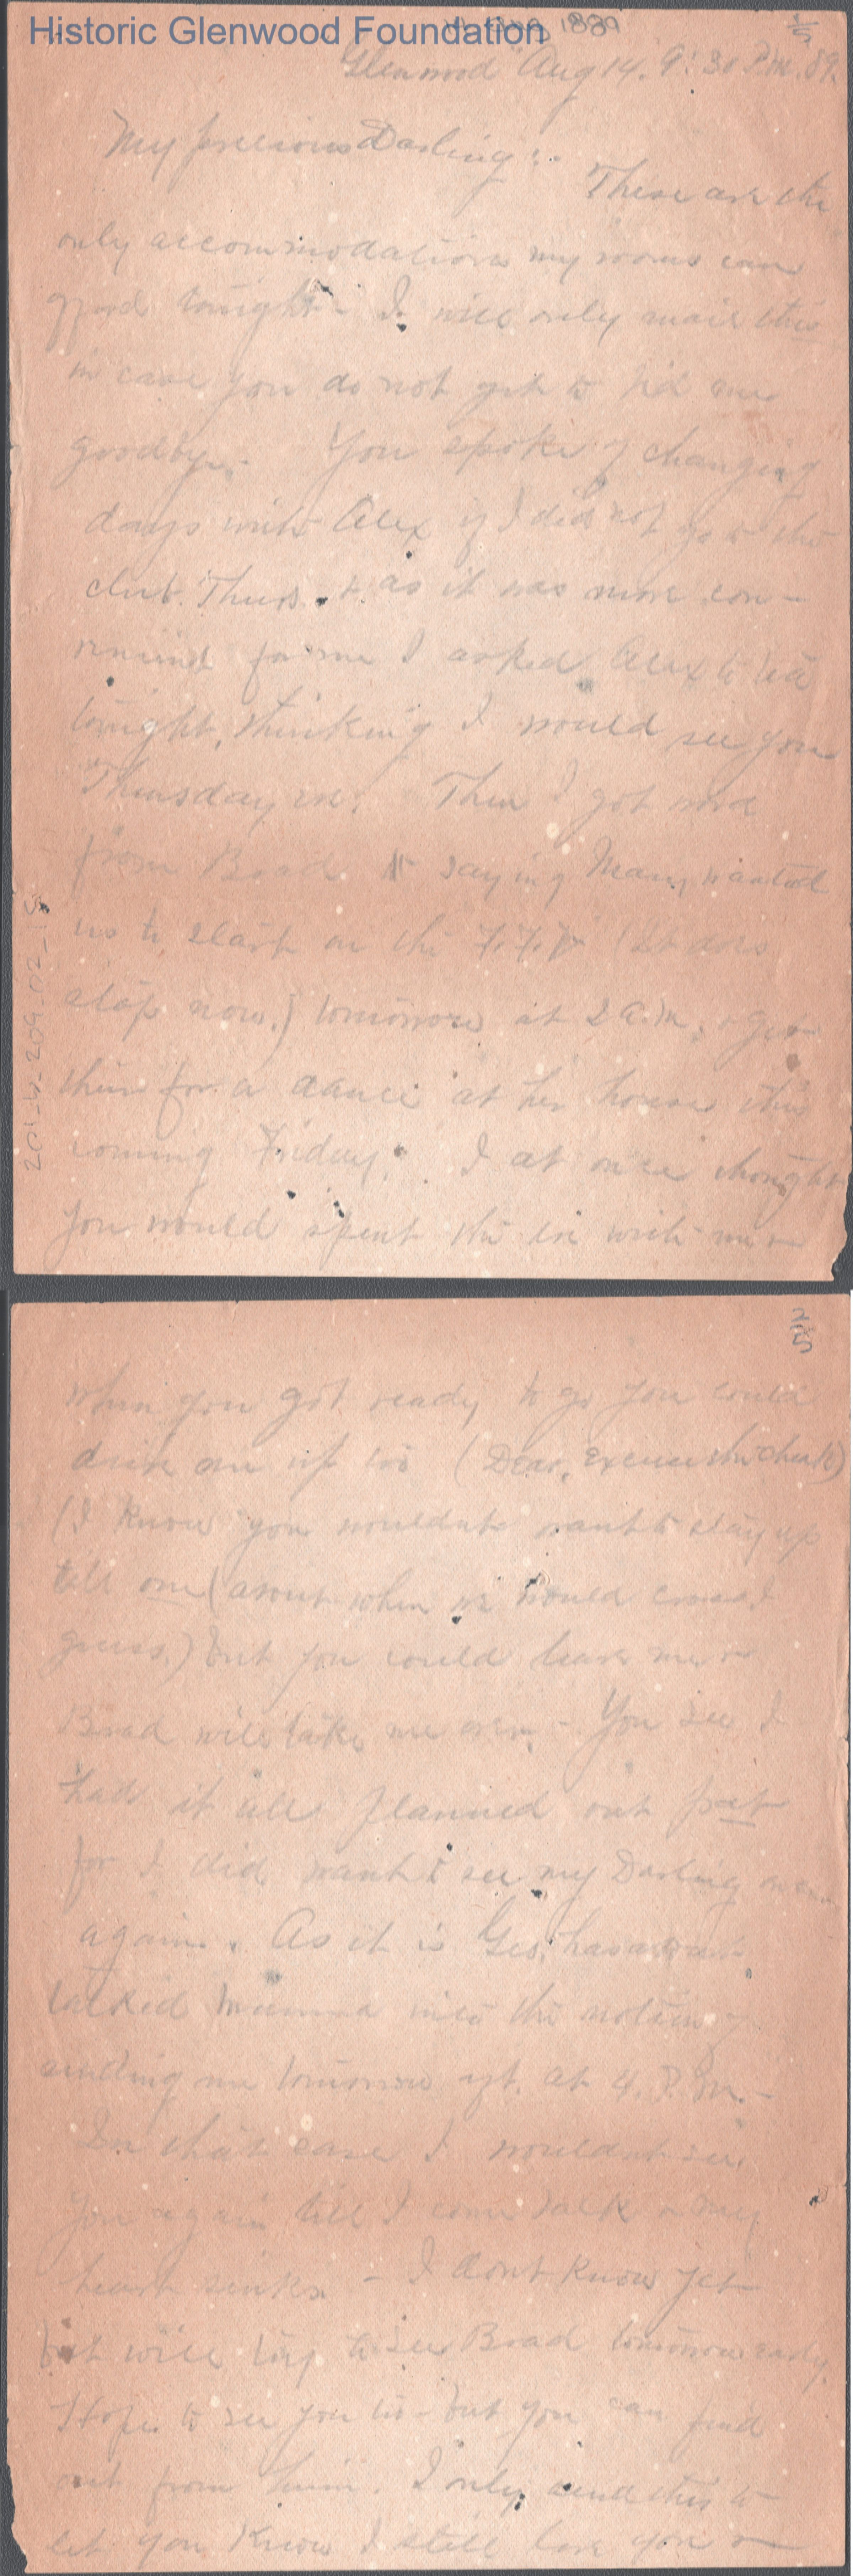 Historic Glenwood Foundation
14 Aug 1889
1/5
Glenwood Aug 14. 9:30 P.m. 89.
My precious Darling:-
These are the
only accommodations my rooms can
afford tonight - I will only mail this
in case you do not get to bid me
goodbye.- You spoke of changing
days with Alex if I did not go to the
club Thurs. & as it was more con-
venient for me I asked Alex to tea
tonight, thinking I would see you
Thursday eve. Then I got word
from Brad saying Mary wanted
us to start on the F.F.V. (It does
stop now.) tomorrow at 2 a.m. & get
there for a dance at her house this
coming Friday. I at once thought
you would spent the eve with me &
201-4-209-02-15
2/5
when you got ready to go you could
drive me up to (Dear, excuse the cheek)
(I know you wouldnt want to stay up
till one (about when we would cross, I
guess.) but you could leave me &
Brad will take me over. - You see I
had it all planned out pat
for I did want to see my Darling once
again. As it is Geo. has about
talked Mamma into the notion of
sending me tomorrow aft. at 4. P.m.-
In that case I wouldnt see
you again till I come back & my
heart sinks. - I dont know yet
but will try to see Brad tomorrow early.
Hope to see you to - but you can find
out from him. I only send this to
let you know I still love you &